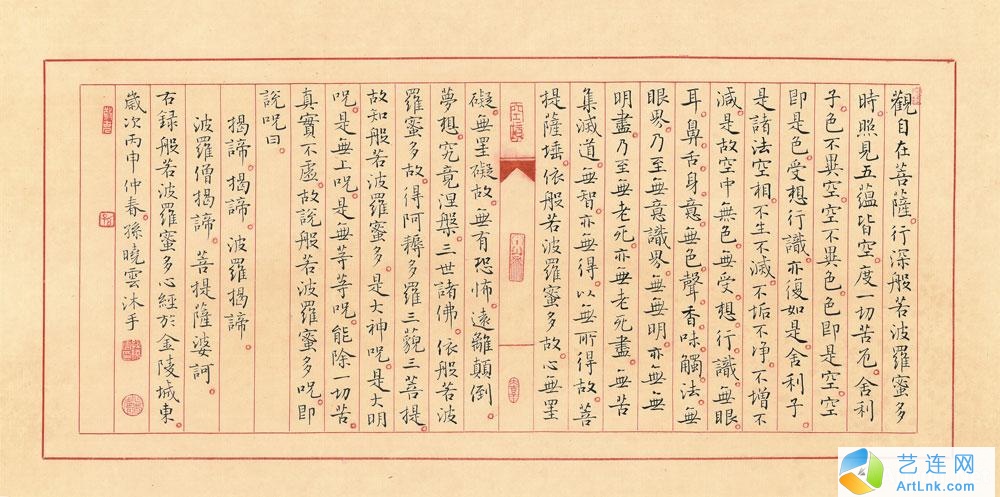 觀自在菩薩。行深般若波羅蜜多
時。照見五蘊皆空。度一切苦厄。舍利
子。色不異空。空不異色。色即是空。空
即是色。受想行識。亦復如是。舍利子
是諸法空相。不生不滅。不垢不净。不增不
減。是故空中無色。無受想行識。無眼
耳。鼻舌身意。無色聲香味觸法。無
眼界。乃至無意識界。無無明。亦無無
明盡。乃至無老死。亦無老死盡。無苦
集滅道。無智亦無得。以無所得故。菩
提薩埵。依般若波羅蜜多故。心無罣
礙。無罣礙故。無有恐怖。遠離顛倒
夢想。究竟涅槃。三世諸佛。依般若波
羅蜜多故。得阿耨多羅三藐三菩提。
故知般若波羅蜜多。是大神咒。是大明
咒。是無上咒。是無等等咒。能除一切苦
真實不虛。故說般若波羅蜜多咒。即
說咒曰。
揭諦。揭諦。波羅揭諦。
波羅僧揭諦。菩提薩婆訶
右録般若波羅蜜多心經於金陵城東
歲次丙申仲春。孫曉雲沐手
艺连网
ArtLnk.com